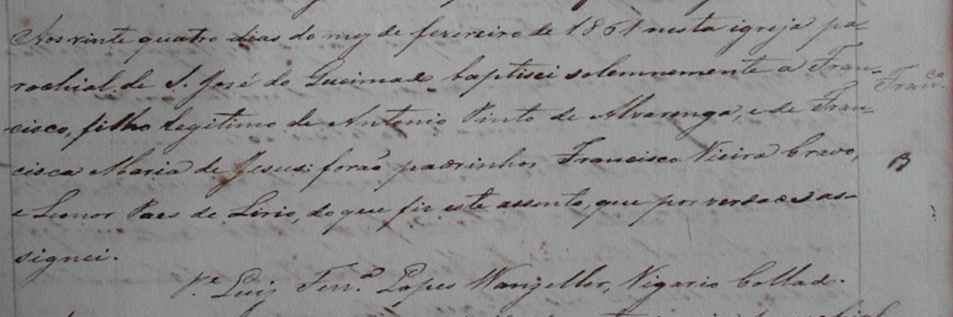 Aos vinte quatro dias do mez de fevereiro de 1861 nesta igreja pa-
rochial de S. José do Queimado baptisei solemnemente a Fran-
Franco.
cisco, filho legitimo de Antonio Pinto de Alvarenga, e de Fran-
cisca Maria de Jesus: forão padrinhos Francisco Vieira Bravo,
B
e Leonor Paes de Lirio, do que fiz este assento, que por verdade as-
signei.
Pe. Luiz Lopes Wanzeller, Vigario Collado.